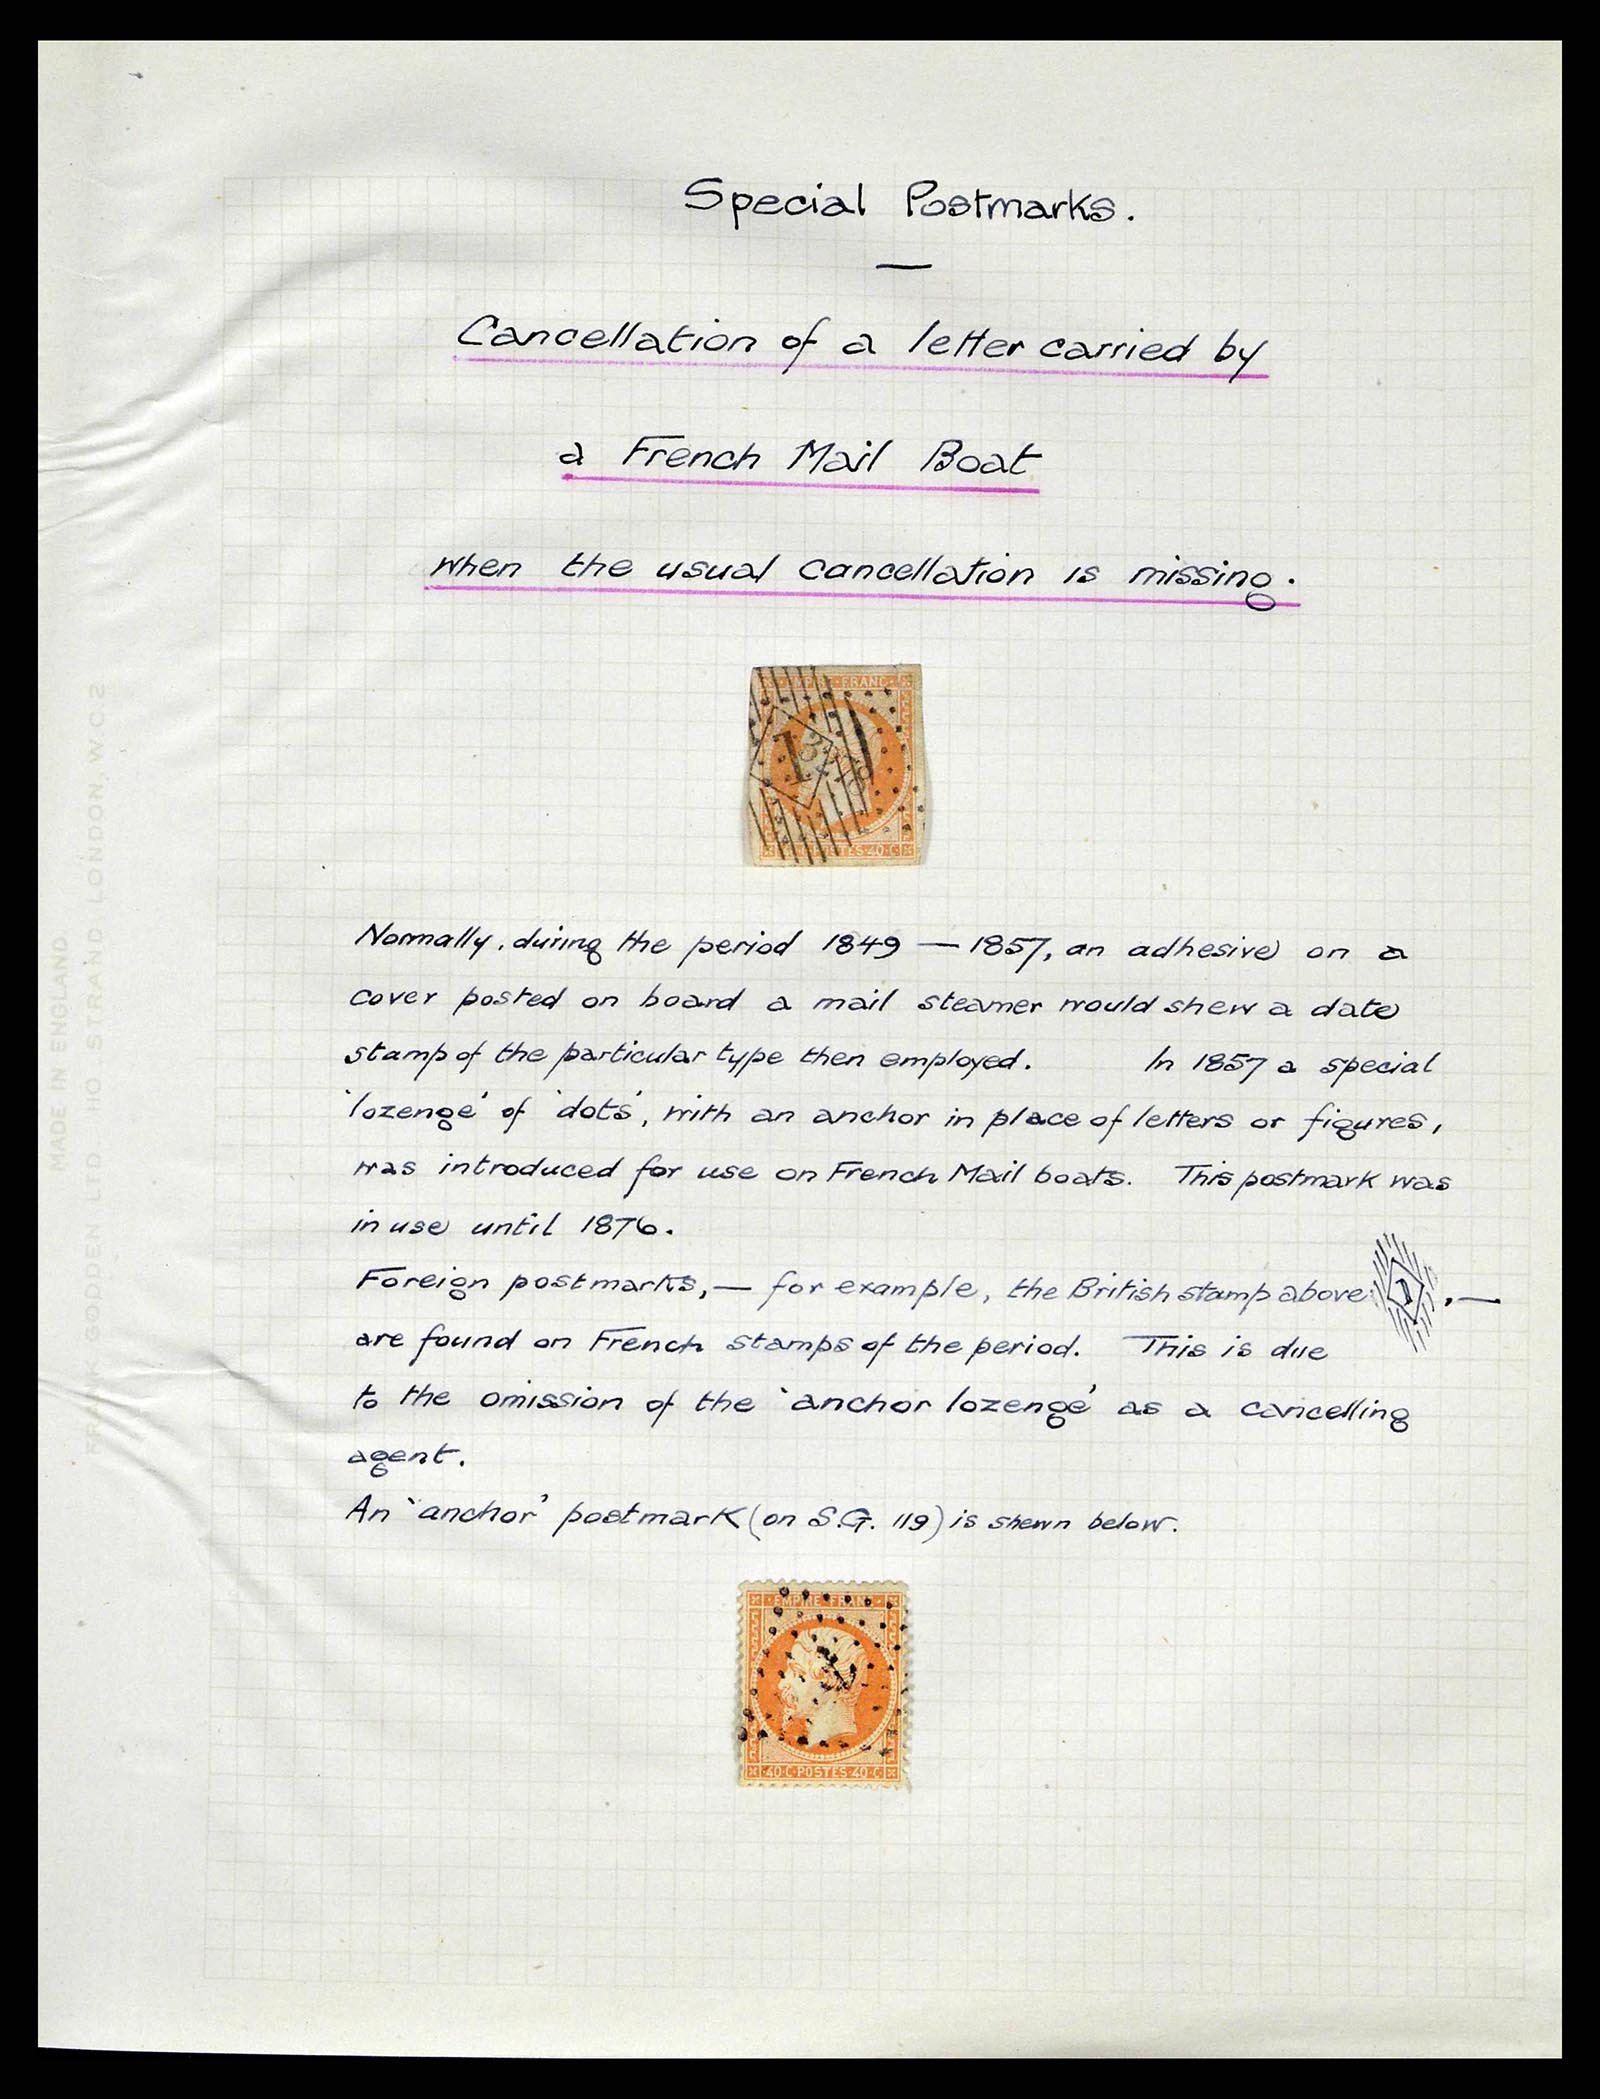 Special Postmarks.
Cancellation of a letter carried by
a French Mail Boat
when the usual cancellation is missing.
FRANC
1
3
POSTES·40·C
Normally, during the period 1849 — 1857, an adhesive on a
cover posted on board a mail steamer would shew a date
stamp of the particular type then employed. In 1857 a special
'lozenge' of 'dots', with an anchor in place of letters or figures,
was introduced for use on French Mail boats. This postmark was
in use until 1876.
Foreign postmarks, — for example, the British stamp above 1, —
are found on French stamps of the period. This is due
to the omission of the 'anchor lozenge' as a cancelling
agent.
An 'anchor' postmark (on S.G. 119) is shewn below.
EMPIRE FRANC
40·C·POSTES·40·C
MADE IN ENGLAND
FRANK GODDEN LTD. 110 STRAND LONDON, W C 2